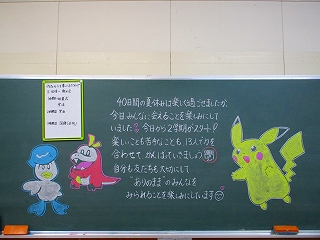 40日間の夏休みは楽しく過ごせましたか。
今日、みんなに会えることを楽しみにして
いました。今日から2学期がスタート!
楽しいことも苦手なことも、13人で力を
合わせて、がんばっていきましょう
自分も友だちも大切にして
"ありのまま"のみんなを
みられることを楽しみにしています